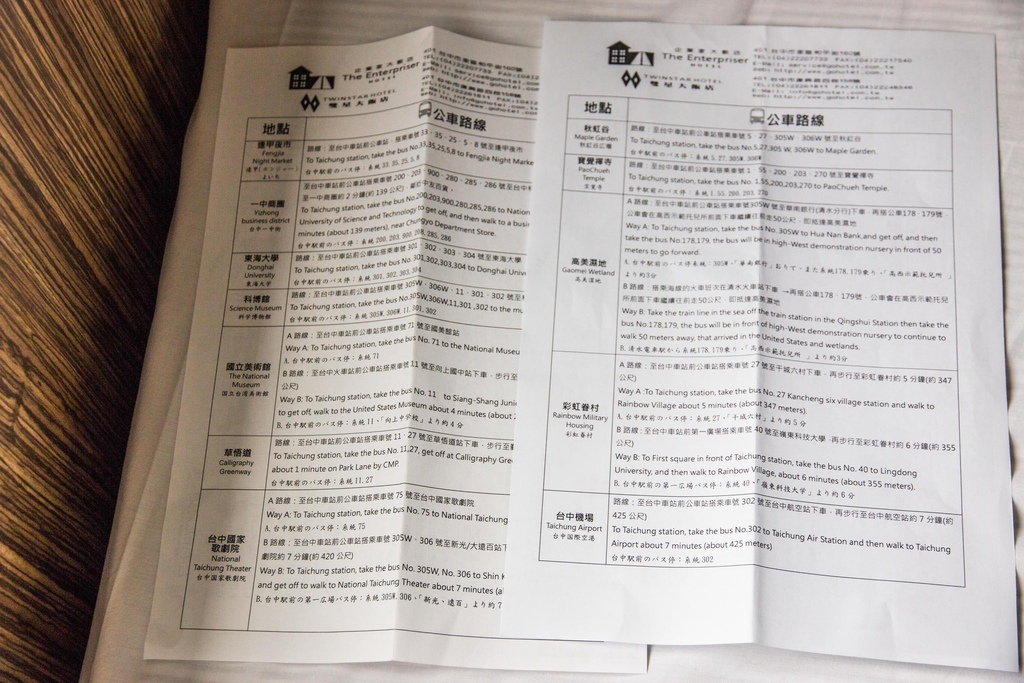 企業家大飯店
The Enterpriser
HOTEL
TWINSTAR HOTEL
雙星大飯店
地點
公車路線
逢甲夜市
Fengjia
Night Market
路線：至台中車站前公車站搭乘車號 33、35、25、5、8 號至逢甲夜市
To Taichung station, take the bus No.33,35,25,5,8 to Fengjia Night Marke
台中駅前のバス停：系統 33, 35, 25, 5, 8
一中商圈
Yizhong
business district
台中一中街
路線：至台中車站前公車站搭乘車號 200、203、900、280、285、286 號至台中科
至一中商圈約 2 分鐘(約 139 公尺)，鄰近中友百貨。
To Taichung station, take the bus No.200,203,900,280,285,286 to Nation
University of Science and Technology to get off, and then walk to a busine
minutes (about 139 meters), near Chungyo Department Store.
台中駅前のバス停：系統 200, 203, 900, 208, 285, 286
東海大學
Donghai
University
東海大学
路線：至台中車站前公車站搭乘車號 301、302、303、304 號至東海大學
To Taichung station, take the bus No.301,302,303,304 to Donghai Univer
台中駅前のバス停：系統 301, 302, 303, 304
科博館
Science Museum
科学博物館
路線：至台中車站前公車站搭乘車號 305W、306W、11、301、302 號至科
To Taichung station, take the bus No.305W,306W,11,301 ,302 to the mu
台中駅前のバス停：系統 305W, 306W, 11, 301, 302
國立美術館
The National
Museum
国立台湾美術館
A 路線：至台中車站前公車站搭乘車號 71 號至國美館站
Way A: To Taichung station, take the bus No. 71 to the National Museu
A. 台中駅前のバス停：系統 71
B 路線：至台中火車站前公車站搭乘車號 11 號至向上國中站下車，步行至
公尺)
Way B: To Taichung station, take the bus No. 11 to Siang-Shang Junio
to get off, walk to the United States Museum about 4 minutes (about
B. 台中駅前のバス停：系統 11、「向上中学校」より約 4分
草悟道
Calligraphy
Greenway
路線：至台中車站前公車站搭乘車號 11、27 號至草悟道站下車，步行至
To Taichung station, take the bus No. 11,27, get off at Calligraphy Gre
about 1 minute on Park Lane by CMP.
台中駅前のバス停：系統 11, 27
台中國家
歌劇院
National
Taichung Theater
台中国家歌劇院
A 路線：至台中車站前公車站搭乘車號 75 號至台中國家歌劇院
Way A: To Taichung station, take the bus No. 75 to National Taichung
A. 台中駅前のバス停：系統 75
B 路線：至台中車站前公車站搭乘車號 305W、306 號至新光/大遠百站下
劇院約 7 分鐘(約 420 公尺)
Way B: To Taichung station, take the bus No. 305W, No. 306 to Shin K
and get off to walk to National Taichung Theater about 7 minutes (a
B. 台中駅前の第一広場バス停：系統 305W. 306、「新光、遠百」より約 7
企業家大飯店
The Enterpriser
HOTEL
TWINSTAR HOTEL
雙星大飯店
401 台中市東區和平街160號
TEL:(04)22207733 FAX:(04)22217540
地點
公車路線
秋虹谷
Maple Garden
秋紅谷広場
路線：至台中車站前公車站搭乘車號 5、27、305W、306W 號至秋虹谷
To Taichung station, take the bus No.5,27,305 W, 306W to Maple Garden.
台中駅前のバス停：系統 5, 27, 305W, 306W
寶覺禪寺
PaoChueh Temple
宝覚寺
路線：至台中車站前公車站搭乘車號 1、55、200、203、270 號至寶覺禪寺
To Taichung station, take the bus No. 1,55,200,203,270 to PaoChueh Temple.
台中駅前のバス停：系統 1, 55, 200, 203, 270
高美濕地
Gaomei Wetland
高美湿地
A 路線：至台中車站前公車站搭乘車號305W號至華南銀行(清水分行)下車，再搭公車178、179號，
公車會在高西示範托兒所前面下車繼續往前走50公尺，即抵達高美濕地
Way A: To Taichung station, take the bus No. 305W to Hua Nan Bank,and get off, and then
take the bus No.178,179, the bus will be in high-West demonstration nursery in front of 50
meters to go forward.
A. 台中駅前のバス停：系統：305W、「華南銀行」おりて、また系統 178, 179乗り、「高西示範托兒所」
より約3分
B 路線：搭乘海線的火車班次在清水火車站下車 →再搭公車178、179號，公車會在高西示範托兒
所前面下車繼續往前走50公尺，即抵達高美濕地
Way B: Take the train line in the sea off the train station in the Qingshui Station then take the
bus No.178,179, the bus will be in front of high-West demonstration nursery to continue to
walk 50 meters away, that arrived in the United States and wetlands.
B. 清水電車駅から系統178, 179乗り、「高西示範托兒所 」より約3分
彩虹眷村
Rainbow Military
Housing
彩虹眷村
A 路線：至台中車站前公車站搭乘車號 27 號至干城六村下車，再步行至彩虹眷村約 5 分鐘(約 347
公尺)
Way A :To Taichung station, take the bus No. 27 Kancheng six village station and walk to
Rainbow Village about 5 minutes (about 347 meters).
A. 台中駅前のバス停：系統 27、「干城六村」より約 5分
B 路線：至台中車站前第一廣場搭乘車號 40 號至嶺東科技大學，再步行至彩虹眷村約 6 分鐘(約 355
公尺)
Way B: To First square in front of Taichung station, take the bus No. 40 to Lingdong
University, and then walk to Rainbow Village, about 6 minutes (about 355 meters).
B. 台中駅前の第一広場バス停：系統 40、「嶺東科技大学」より約 6 分
台中機場
Taichung Airport
台中国際空港
路線：至台中車站前公車站搭乘車號 302 號至台中航空站下車，再步行至台中航空站約 7 分鐘(約
425 公尺)
To Taichung station, take the bus No.302 to Taichung Air Station and then walk to Taichung
Airport about 7 minutes (about 425 meters)
台中駅前のバス停：系統 302